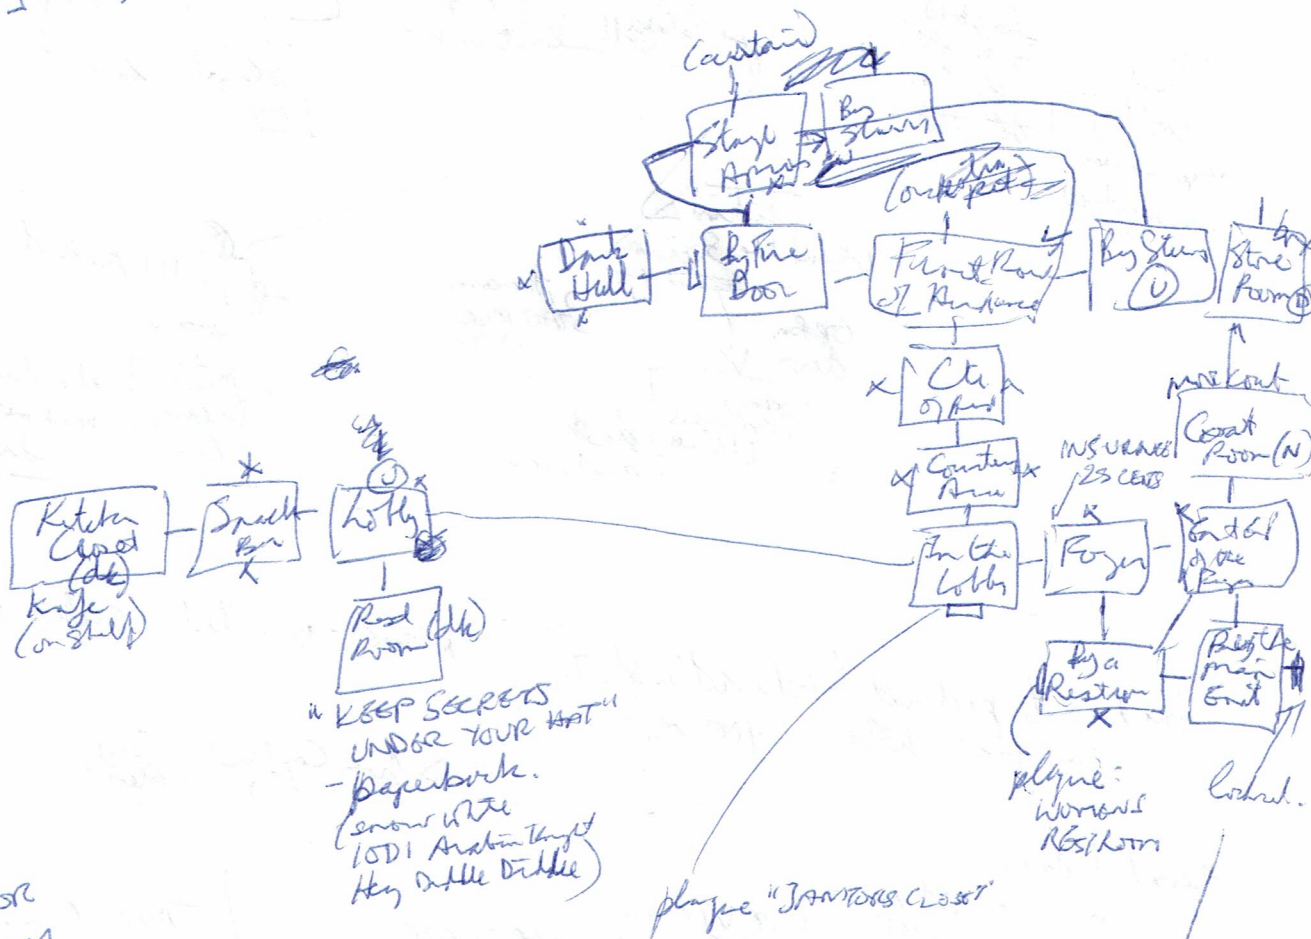 (curtain)
Stage
Apron
By
Stairs
Dark
Hall
By Fire
Door
Front Row
of Audience
By Stairs
(U)
Store
Room
Ctr
of Aud
workout
Coat
Room (N)
INSURANCE
25 CENTS
Kitchen
Closet
(dk)
Knife
(on shelf)
Snack
Bar
(U)
Lobby
In the
Lobby
Foyer
East End
of the
Foyer
Read
Room (dk)
By a
Restroom
By the
main
Ent
"KEEP SECRETS
UNDER YOUR HAT"
- paperback.
(snow white
1001 Arabian Knight
Hey Diddle Diddle)
plaque:
WOMANS
RESTROOM
locked.
plaque "JANITORS CLOSET"